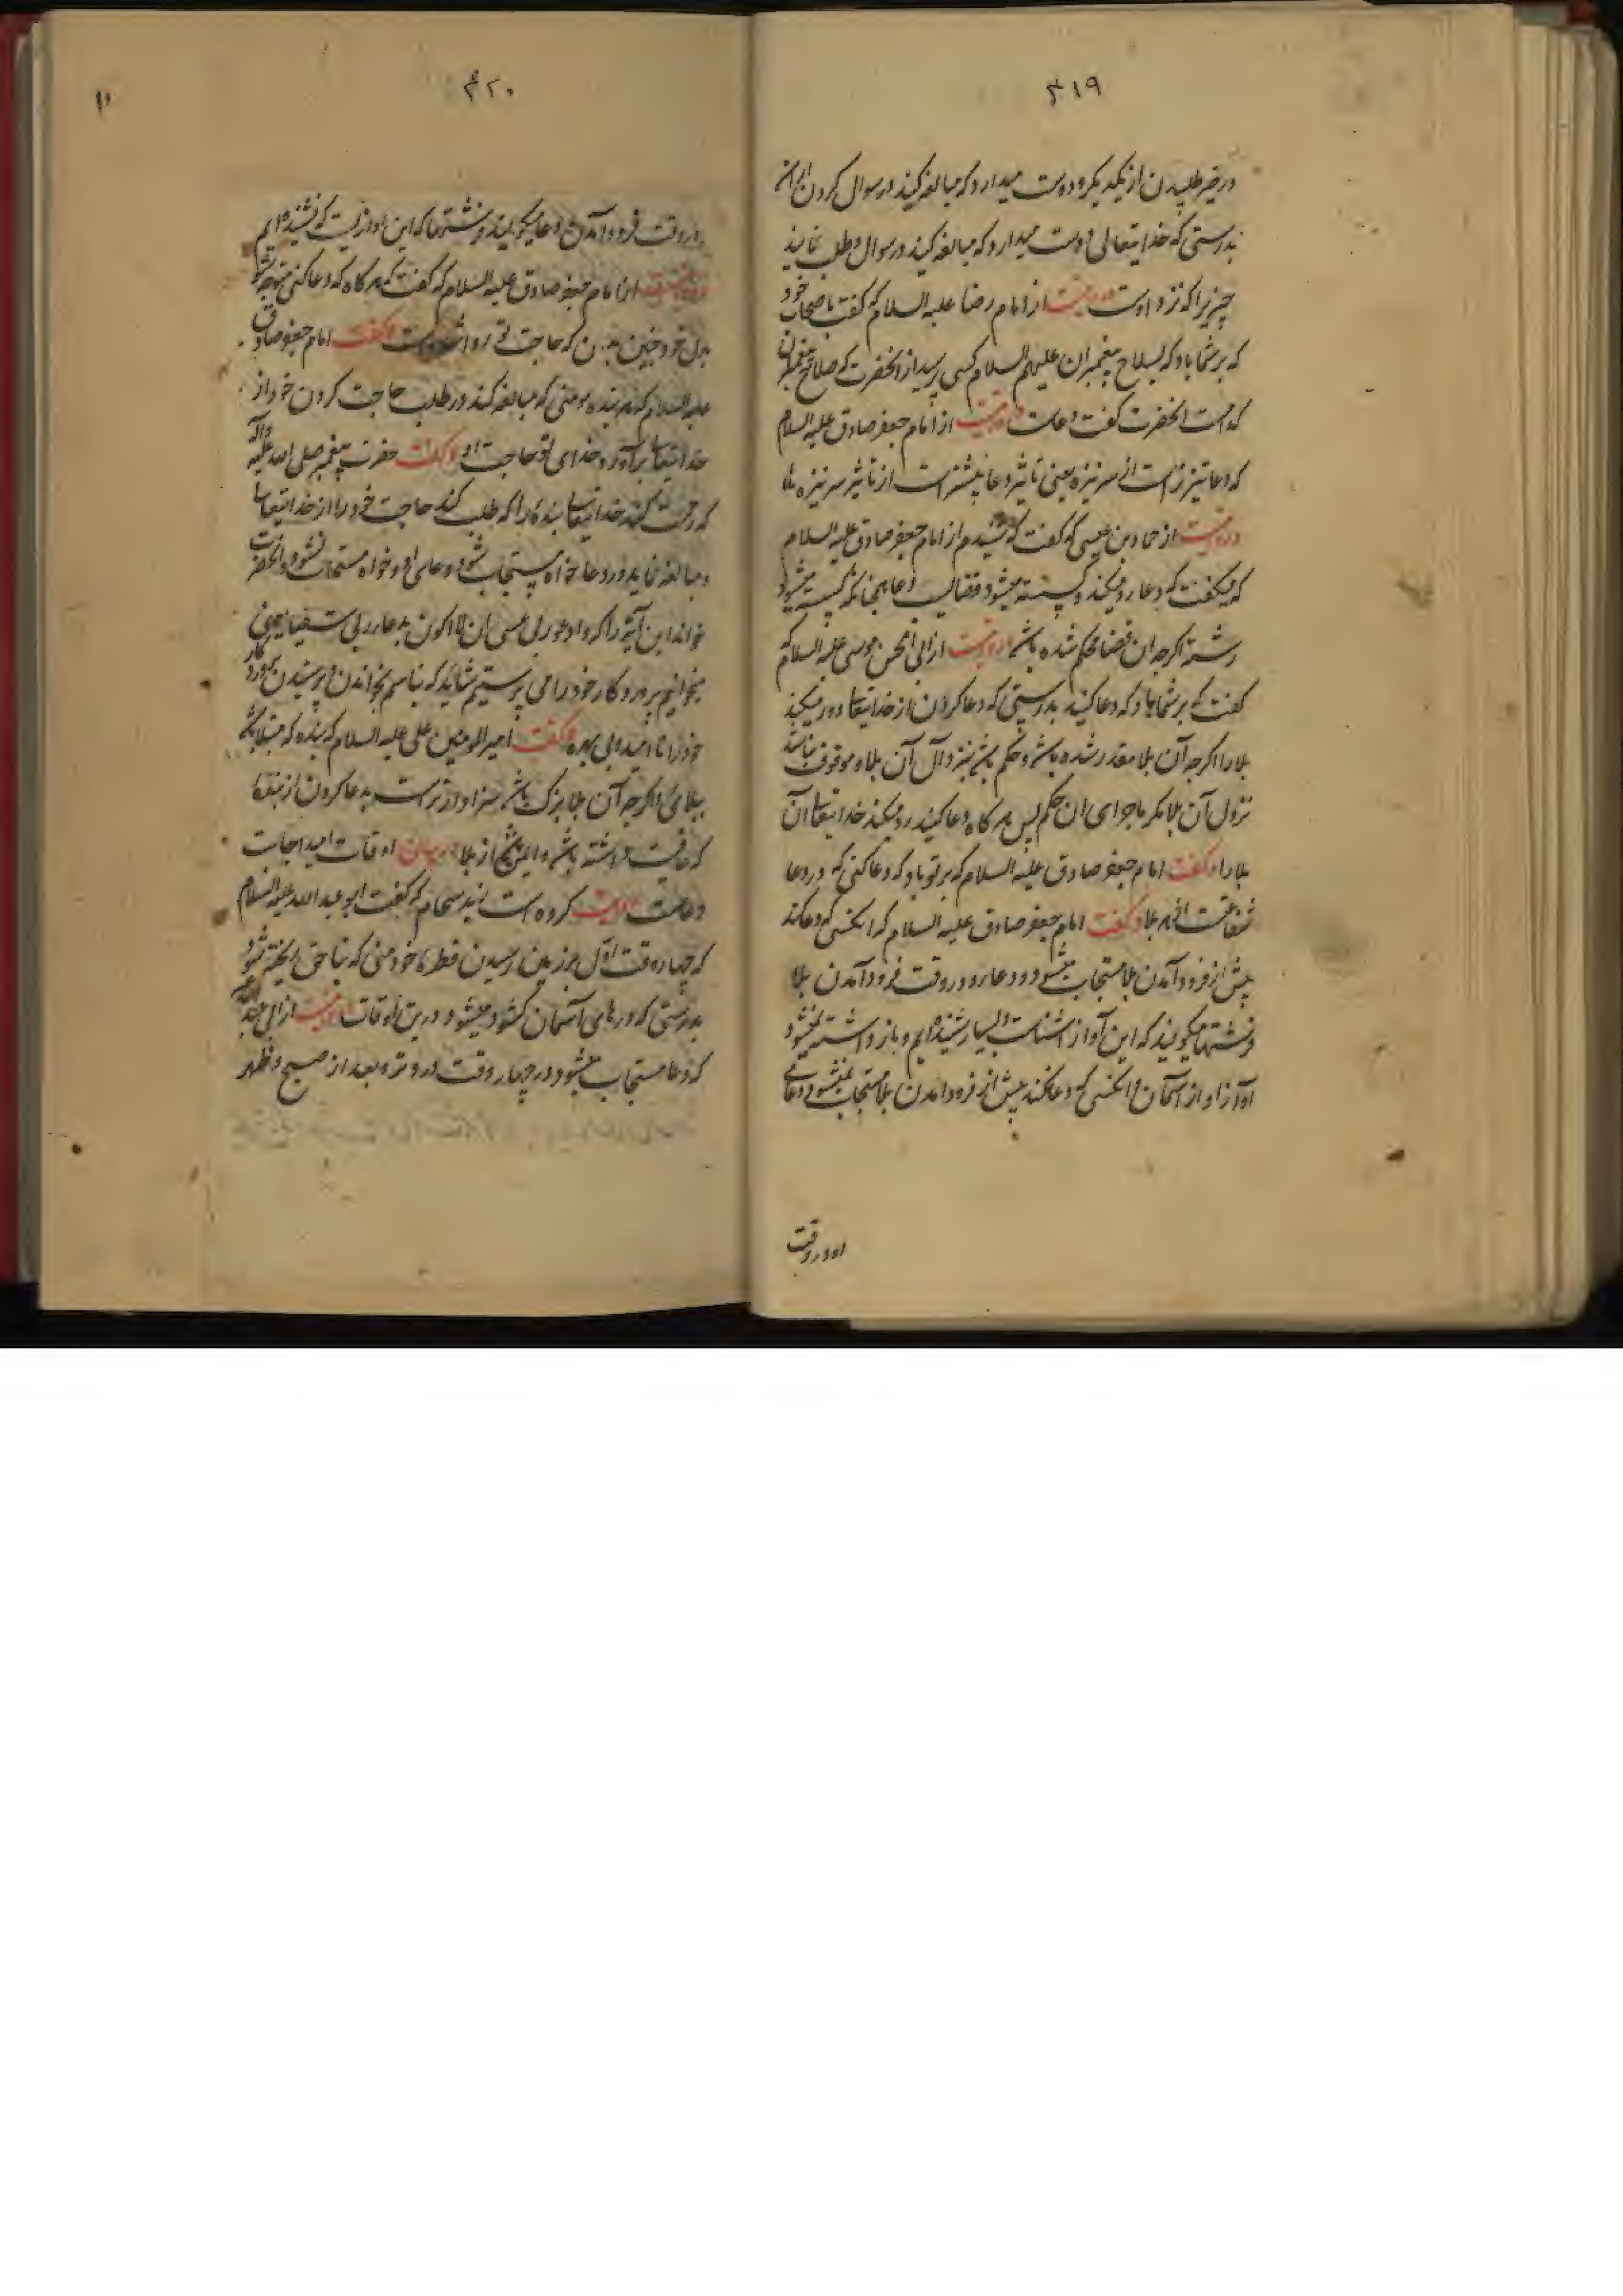 ۳۱۹
در خیر طلبیدن از یکدیگر و دوست میدارد که مبالغه کنید در سوال کردن از آن
بدرستی که خدایتعالی دوست میدارد که مبالغه کنید در سوال و طلب نمایند
چیزیرا که نزد اوست و روایتست از امام رضا علیه السلام که گفت باصحاب خود
که بر شما باد که بسلاح پیغمبران علیهم السلام کسی پرسید از انحضرت که صلاح پیغمبران
کدامست انحضرت گفت دعاست و روایتست از امام جعفر صادق علیه السلام
که دعا تیزتر است از سر نیزه یعنی تاثیر دعا بیشتر است از تاثیر سر نیزه ها
و روایتست از حماد بن عیسی که گفت که شنیدم از امام جعفر صادق علیه السلام
که میگفت که دعا رد میکند و گسسته میشود قضا بسبب دعا همچنانکه گسسته میشود
رشته اگرچه ان قضا محکم شده باشد و روایتست از ابی الحسن موسی علیه السلام که
گفت که بر شما باد که دعا کنید بدرستی که دعا کردن از خدایتعالی دور میکند
بلا را اگرچه آن بلا مقدر شده باشد و حکم باشد بنزول آن بلا و موقوف نباشد
نزول آن بلا مگر باجرای ان حکم پس هر گاه دعا کنید رد میکند خدایتعالی آن
بلا را و گفت امام جعفر صادق علیه السلام که بر تو باد که دعا کنی که در دعا
شفاست از هر بلا و گفت امام جعفر صادق علیه السلام که انکسی که دعا کند
پیش از فرود آمدن بلا مستجاب میشود دعا و در وقت فرود آمدن بلا
فرشتها میگویند که این آواز اشناست و بسیار شنیده ایم و باز داشته نمیشود
آواز او از آسمان و انکسی که دعا نکند پیش از فرود امدن بلا مستجاب نمیشود دعای
او در وقت
۴۲۰
در وقت فرود آمدن و دعا میگویند فرشتها که این اوازیست که نشنیده ایم
و روایتست از امام جعفر صادق علیه السلام که گفت که هر گاه که دعا کنی متوجه شو
بدل خود چنین بدان که حاجت تو روا شده است و گفت امام جعفر صادق
علیه السلام که هر بنده مومنی که مبالغه کند در طلب حاجت کردن خود از
خدایتعالی برآورد خدای تو حاجت او و گفت حضرت پیغمبر صلی الله علیه وآله
که رحمت کند خدایتعالی بنده را که طلب کند حاجت خود را از خدایتعالی
و مبالغه نماید در دعا خواه مستجاب شود دعای او و خواه مستجاب نشود و انحضرت
خواند این آیة را که وادعو ربی عسی ان لا اکون بدعاء ربی شقیا یعنی
میخوانیم پروردگار خود را می پرستیم شاید که نباشم بخواندن و پرستیدن پروردگار
خود نا امید و بی بهره و گفت امیر المومنین علی علیه السلام که بنده که مبتلا باشد
ببلائی و اگرچه آن بلا بزرگ باشد سزاوارتر است بدعا کردن از بنده
که عافیت داشته باشد و ایمن باشد از بلا در بیان اوقات امید اجابت
دعاست روایت کرده است زید شحام که گفت ابو عبد الله علیه السلام
که چهار وقت اول وزیدن رسیدن قطره خون مومنی که بناحق ریخته شود
بدرستی که درهای آسمان گشوده میشود درین اوقات و روایتست از ابی عبد الله
که دعا مستجاب میشود در چهار وقت در وتر و بعد از صبح و ظهر